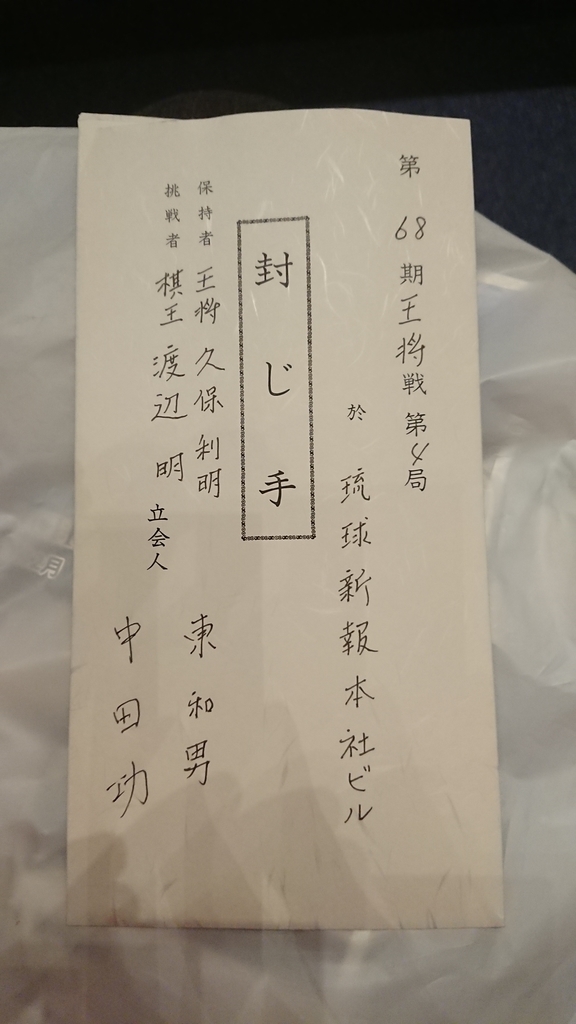 第68期王将戦第4局
於 琉球新報本社ビル
封じ手
保持者 王将 久保利明
挑戦者 棋王 渡辺 明
立会人
東和男
中田功
月